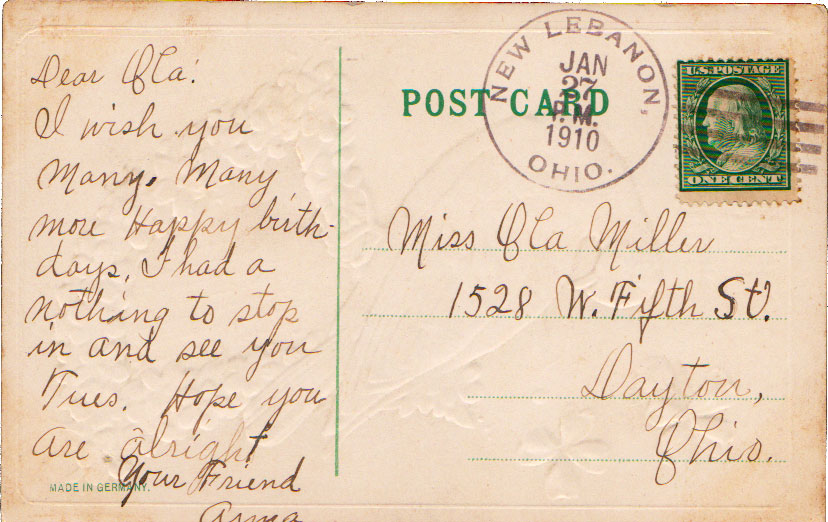 Dear Ola:
I wish you
Many, Many
more Happy birth-
days, I had a
nothing to stop
in and see you
Tues. Hope you
are alright
Your Friend
Anna
MADE IN GERMANY.
POST CARD
NEW LEBANON,
JAN
27
P.M.
1910
OHIO.
U.S. POSTAGE
ONE CENT
Miss Ola Miller
1528 W. Fifth St.
Dayton,
Ohio.